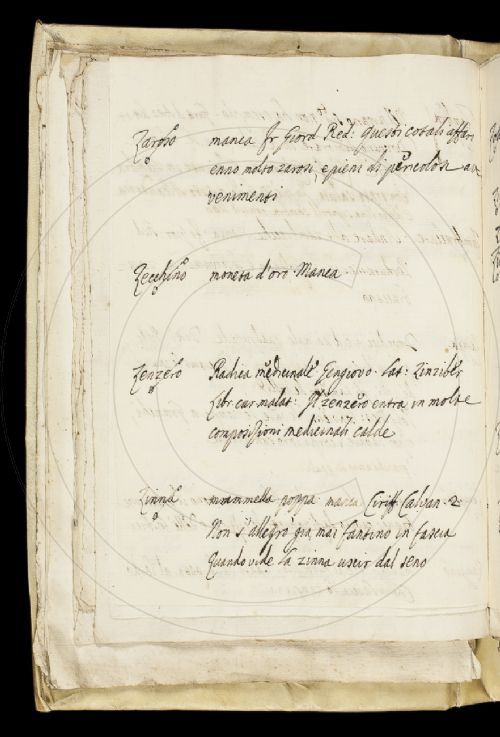 Zaroso manca fr Giord Red: questi cotali affari
enno molto zarosi, e pieni di pericolosi av
venimenti
Zecchino moneta d'oro. Manca.
Zenzero Radica medicinale Gengiovo. Lat: Zinziber
Libr: cur malat: Il zenzero entra in molte
composizioni medicinali calde
Zinna mammella poppa manca Ciriff Calvan. 2
Non s'allegrò gia mai fantino in fascia
Quando vide la zinna uscir dal seno